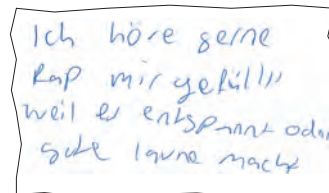 Ich höre gerne
Rap mir gefälll
weil er entspannt oder
gute laune macht